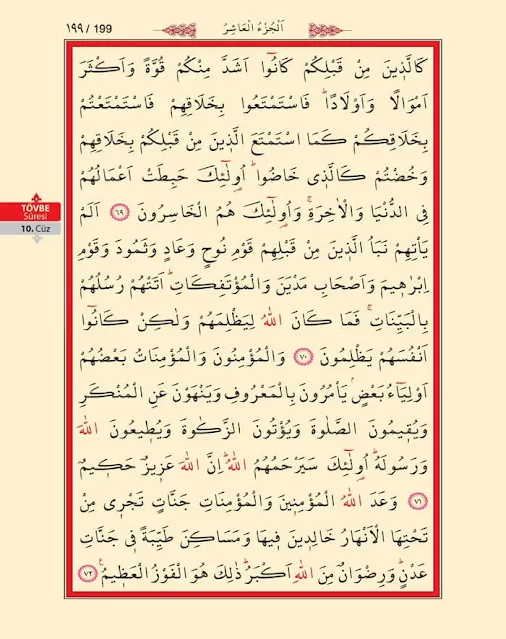 ١٩٩ / 199
اَلْجُزْءُ الْعَاشِرُ
كَالَّذ۪ينَ مِنْ قَبْلِكُمْ كَانُٓوا اَشَدَّ مِنْكُمْ قُوَّةً وَاَكْثَرَ
اَمْوَالًا وَاَوْلَادًاۜ فَاسْتَمْتَعُوا بِخَلَاقِهِمْ فَاسْتَمْتَعْتُمْ
بِخَلَاقِكُمْ كَمَا اسْتَمْتَعَ الَّذ۪ينَ مِنْ قَبْلِكُمْ بِخَلَاقِهِمْ
وَخُضْتُمْ كَالَّذ۪ي خَاضُواۜ اُو۬لٰٓئِكَ حَبِطَتْ اَعْمَالُهُمْ
فِي الدُّنْيَا وَالْاٰخِرَةِۚ وَاُو۬لٰٓئِكَ هُمُ الْخَاسِرُونَ ٦٩ اَلَمْ
يَأْتِهِمْ نَبَأُ الَّذ۪ينَ مِنْ قَبْلِهِمْ قَوْمِ نُوحٍ وَعَادٍ وَثَمُودَ وَقَوْمِ
اِبْرٰه۪يمَ وَاَصْحَابِ مَدْيَنَ وَالْمُؤْتَفِكَاتِۜ اَتَتْهُمْ رُسُلُهُمْ
بِالْبَيِّنَاتِۚ فَمَا كَانَ اللّٰهُ لِيَظْلِمَهُمْ وَلٰكِنْ كَانُٓوا
اَنْفُسَهُمْ يَظْلِمُونَ ٧٠ وَالْمُؤْمِنُونَ وَالْمُؤْمِنَاتُ بَعْضُهُمْ
اَوْلِيَٓاءُ بَعْضٍۢ يَأْمُرُونَ بِالْمَعْرُوفِ وَيَنْهَوْنَ عَنِ الْمُنْكَرِ
وَيُق۪يمُونَ الصَّلٰوةَ وَيُؤْتُونَ الزَّكٰوةَ وَيُط۪يعُونَ اللّٰهَ
وَرَسُولَهُۜ اُو۬لٰٓئِكَ سَيَرْحَمُهُمُ اللّٰهُۜ اِنَّ اللّٰهَ عَز۪يزٌ حَك۪يمٌ
٧١ وَعَدَ اللّٰهُ الْمُؤْمِن۪ينَ وَالْمُؤْمِنَاتِ جَنَّاتٍ تَجْر۪ي مِنْ
تَحْتِهَا الْاَنْهَارُ خَالِد۪ينَ ف۪يهَا وَمَسَاكِنَ طَيِّبَةً ف۪ي جَنَّاتِ
عَدْنٍۜ وَرِضْوَانٌ مِنَ اللّٰهِ اَكْبَرُۜ ذٰلِكَ هُوَ الْفَوْزُ الْعَظ۪يمُ۟ ٧٢
TÖVBE
Sûresi
10. Cüz